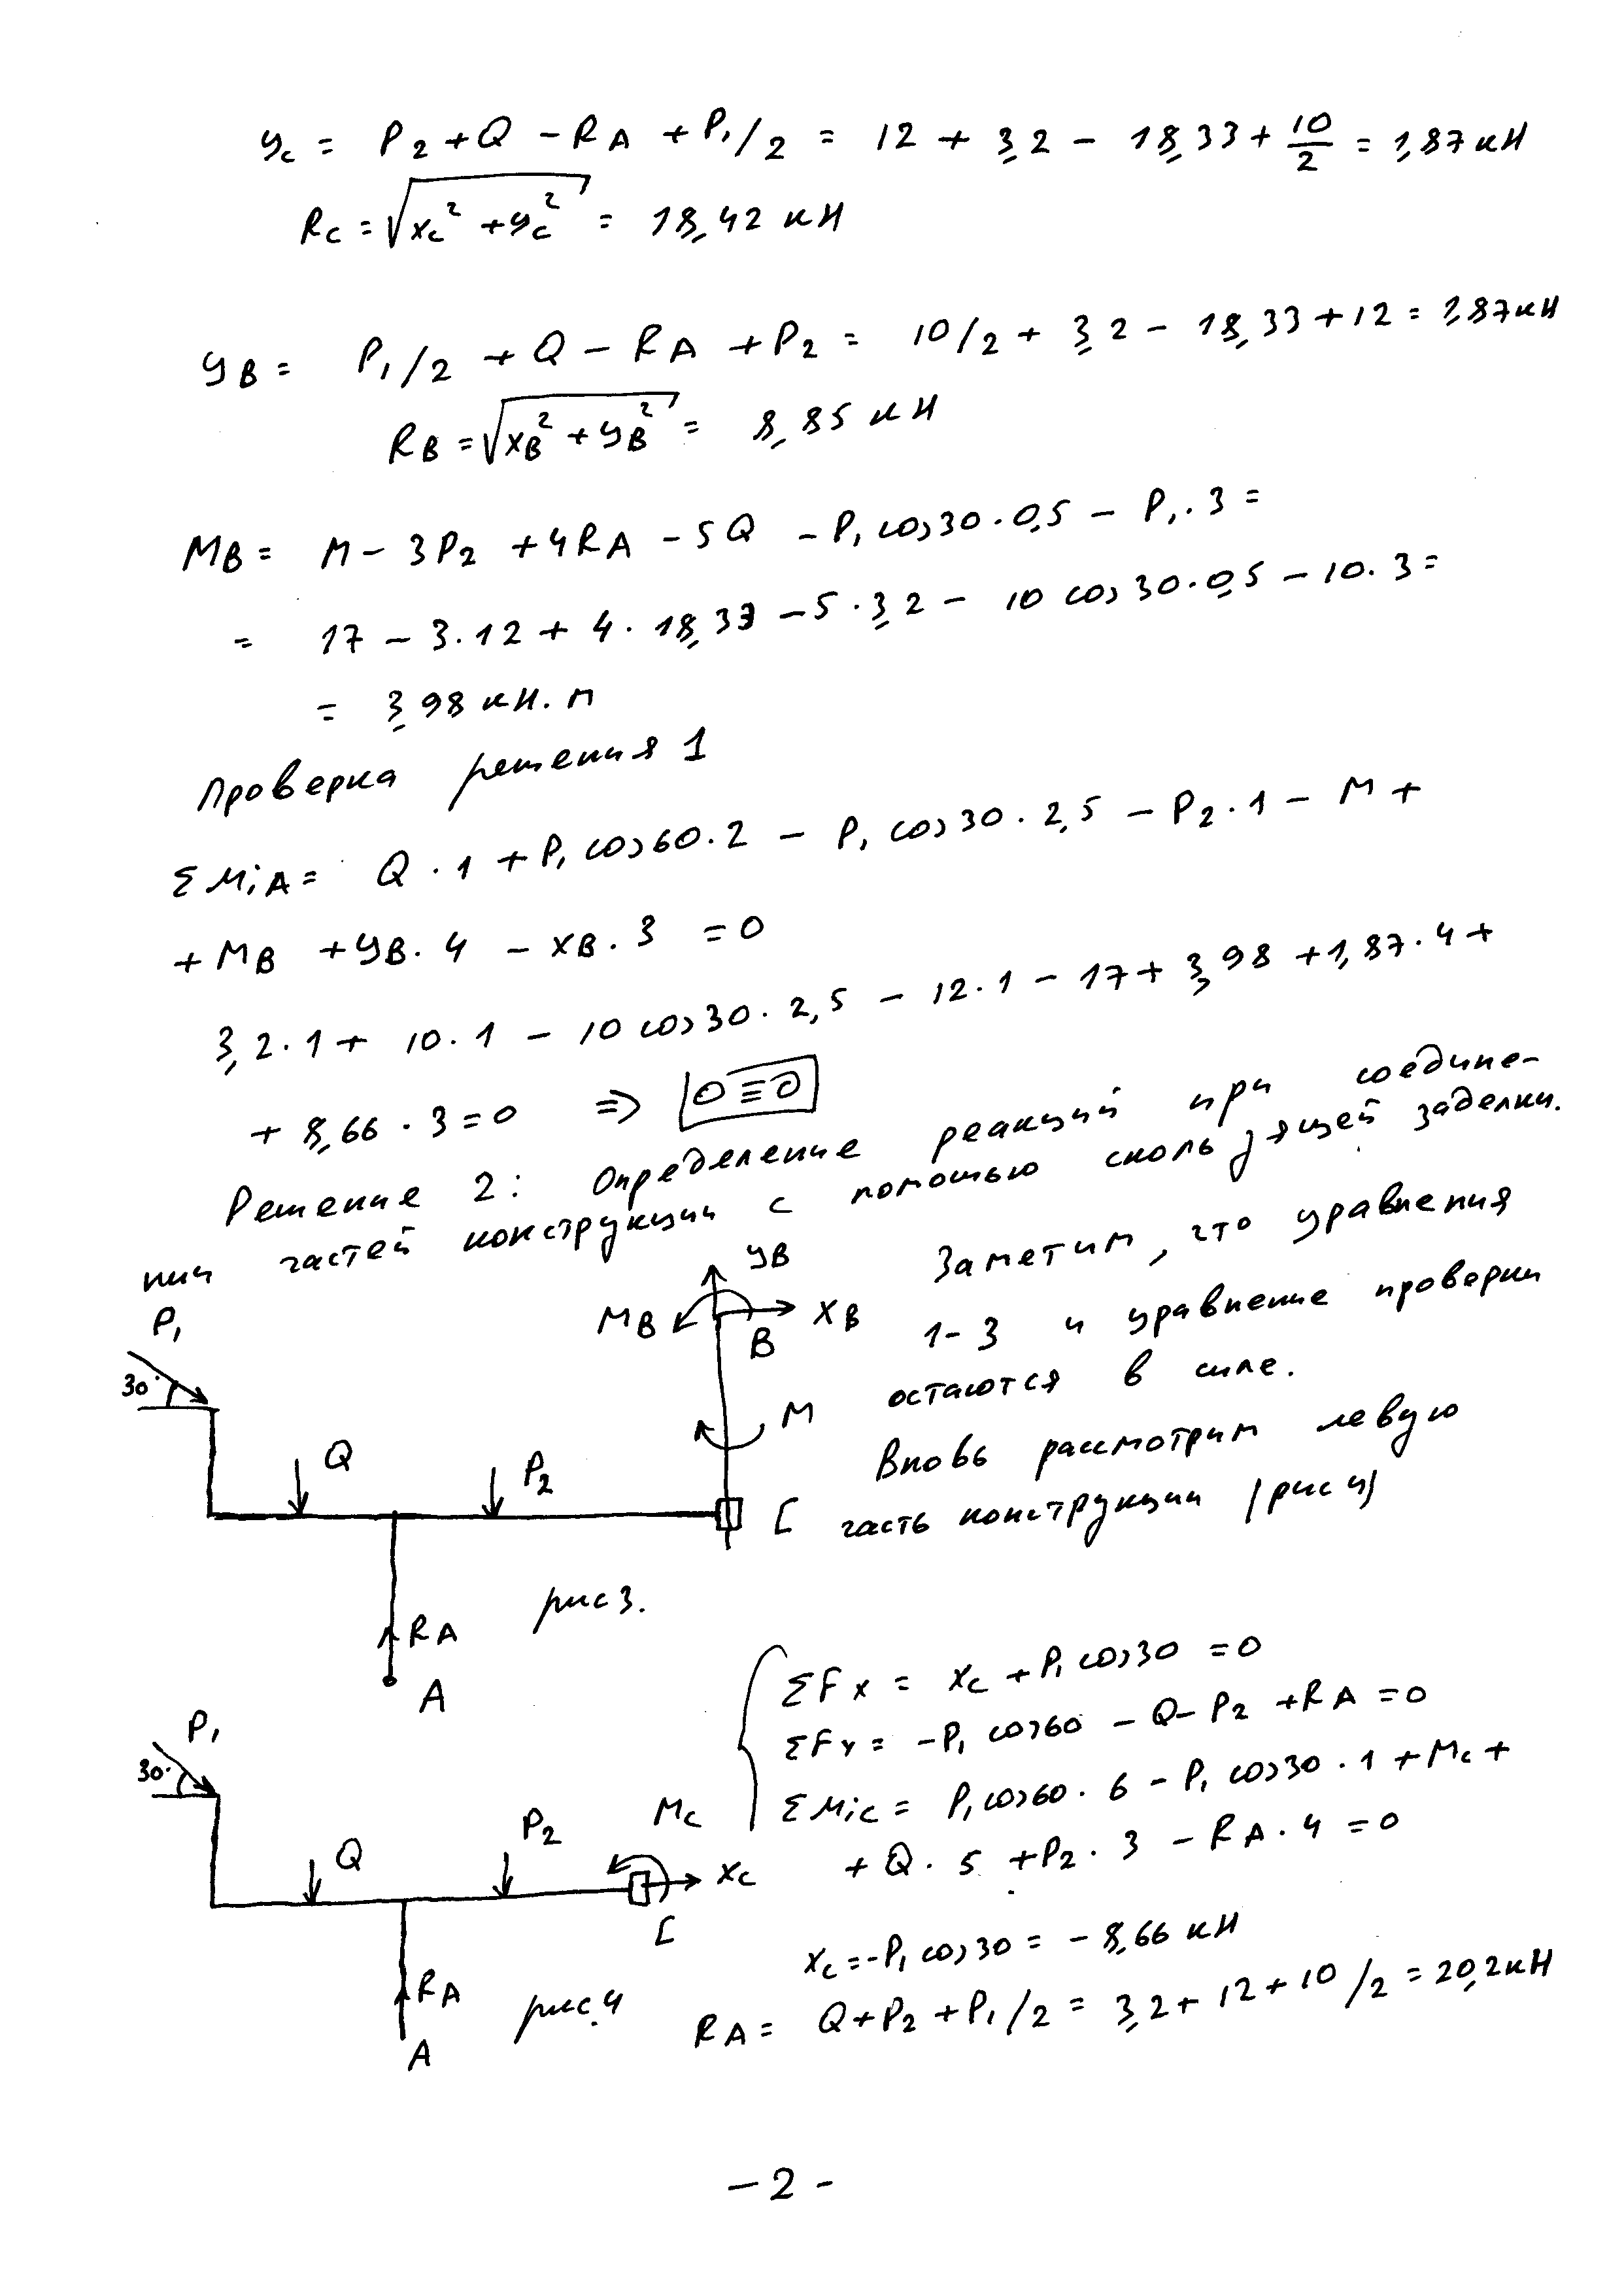 y_C = P_2 + Q - R_A + P_1/2 = 12 + 3,2 - 18,33 + 10/2 = 1,87 кН
R_C = √(x_C² + y_C²) = 18,42 кН
y_B = P_1/2 + Q - R_A + P_2 = 10/2 + 3,2 - 18,33 + 12 = 1,87 кН
R_B = √(x_B² + y_B²) = 8,85 кН
M_B = M - 3P_2 + 4R_A - 5Q - P_1 cos30·0,5 - P_1·3 =
= 17 - 3·12 + 4·18,33 - 5·3,2 - 10 cos30·0,5 - 10·3 =
= 3,98 кН.м
Проверка решения 1
ΣM_iA = Q·1 + P_1 cos60·2 - P_1 cos30·2,5 - P_2·1 - M +
+ M_B + y_B·4 - x_B·3 = 0
3,2·1 + 10·1 - 10 cos30·2,5 - 12·1 - 17 + 3,98 + 1,87·4 +
+ 8,66·3 = 0 => 0 ≡ 0
Решение 2: Определение реакций при соедине-
нии частей конструкции с помощью скользящей заделки.
Заметим, что уравнения
1-3 и уравнение проверки
остаются в силе.
Вновь рассмотрим левую
часть конструкции (рис 4)
P_1
30°
Q
P_2
M_B
y_B
x_B
B
M
C
R_A
A
рис 3.
ΣF_x = x_C + P_1 cos30 = 0
ΣF_y = -P_1 cos60 - Q - P_2 + R_A = 0
ΣM_iC = P_1 cos60·6 - P_1 cos30·1 + M_C +
+ Q·5 + P_2·3 - R_A·4 = 0
P_1
30°
Q
P_2
M_C
x_C
C
R_A
A
рис.4
x_C = -P_1 cos30 = -8,66 кН
R_A = Q + P_2 + P_1/2 = 3,2 + 12 + 10/2 = 20,2 кН
- 2 -